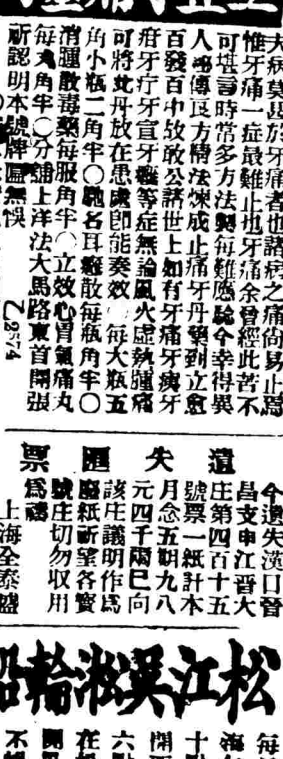 夫病莫甚於牙痛者也諸病之痛尚易止焉
惟牙痛一症最難止也牙痛余曾經此苦不
可堪言時常多方法製每難應驗今幸得異
人傳良方精法煉成止痛牙丹藥到立愈
百發百中故敢公諸世上如有牙痛牙癀牙
疳牙疔牙宣牙癰等症無論風火虛熱腫痛
可將此丹放在患處卽能奏效 每大瓶五
角小瓶二角半〇馳名耳癰散每瓶角半〇
消腫散毒藥每服角半〇立效心胃氣痛丸
每丸角半〇分舖上洋法大馬路東首開張
所認明本號牌匾無悞
乙2554
遺失匯票
今遺失漢口晉
昌支申江晉大
庄第四百十五
號票一紙計本
月念五期九八
元四千兩已向
該庄議明作爲
廢紙祈望各寶
號庄切勿收用
爲禱
上海全泰盛
松江吳淞輪船